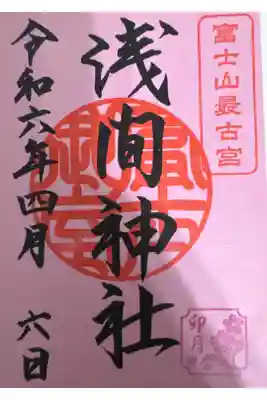 富士山最古宮
浅間神社
令和六年四月六日
卯月